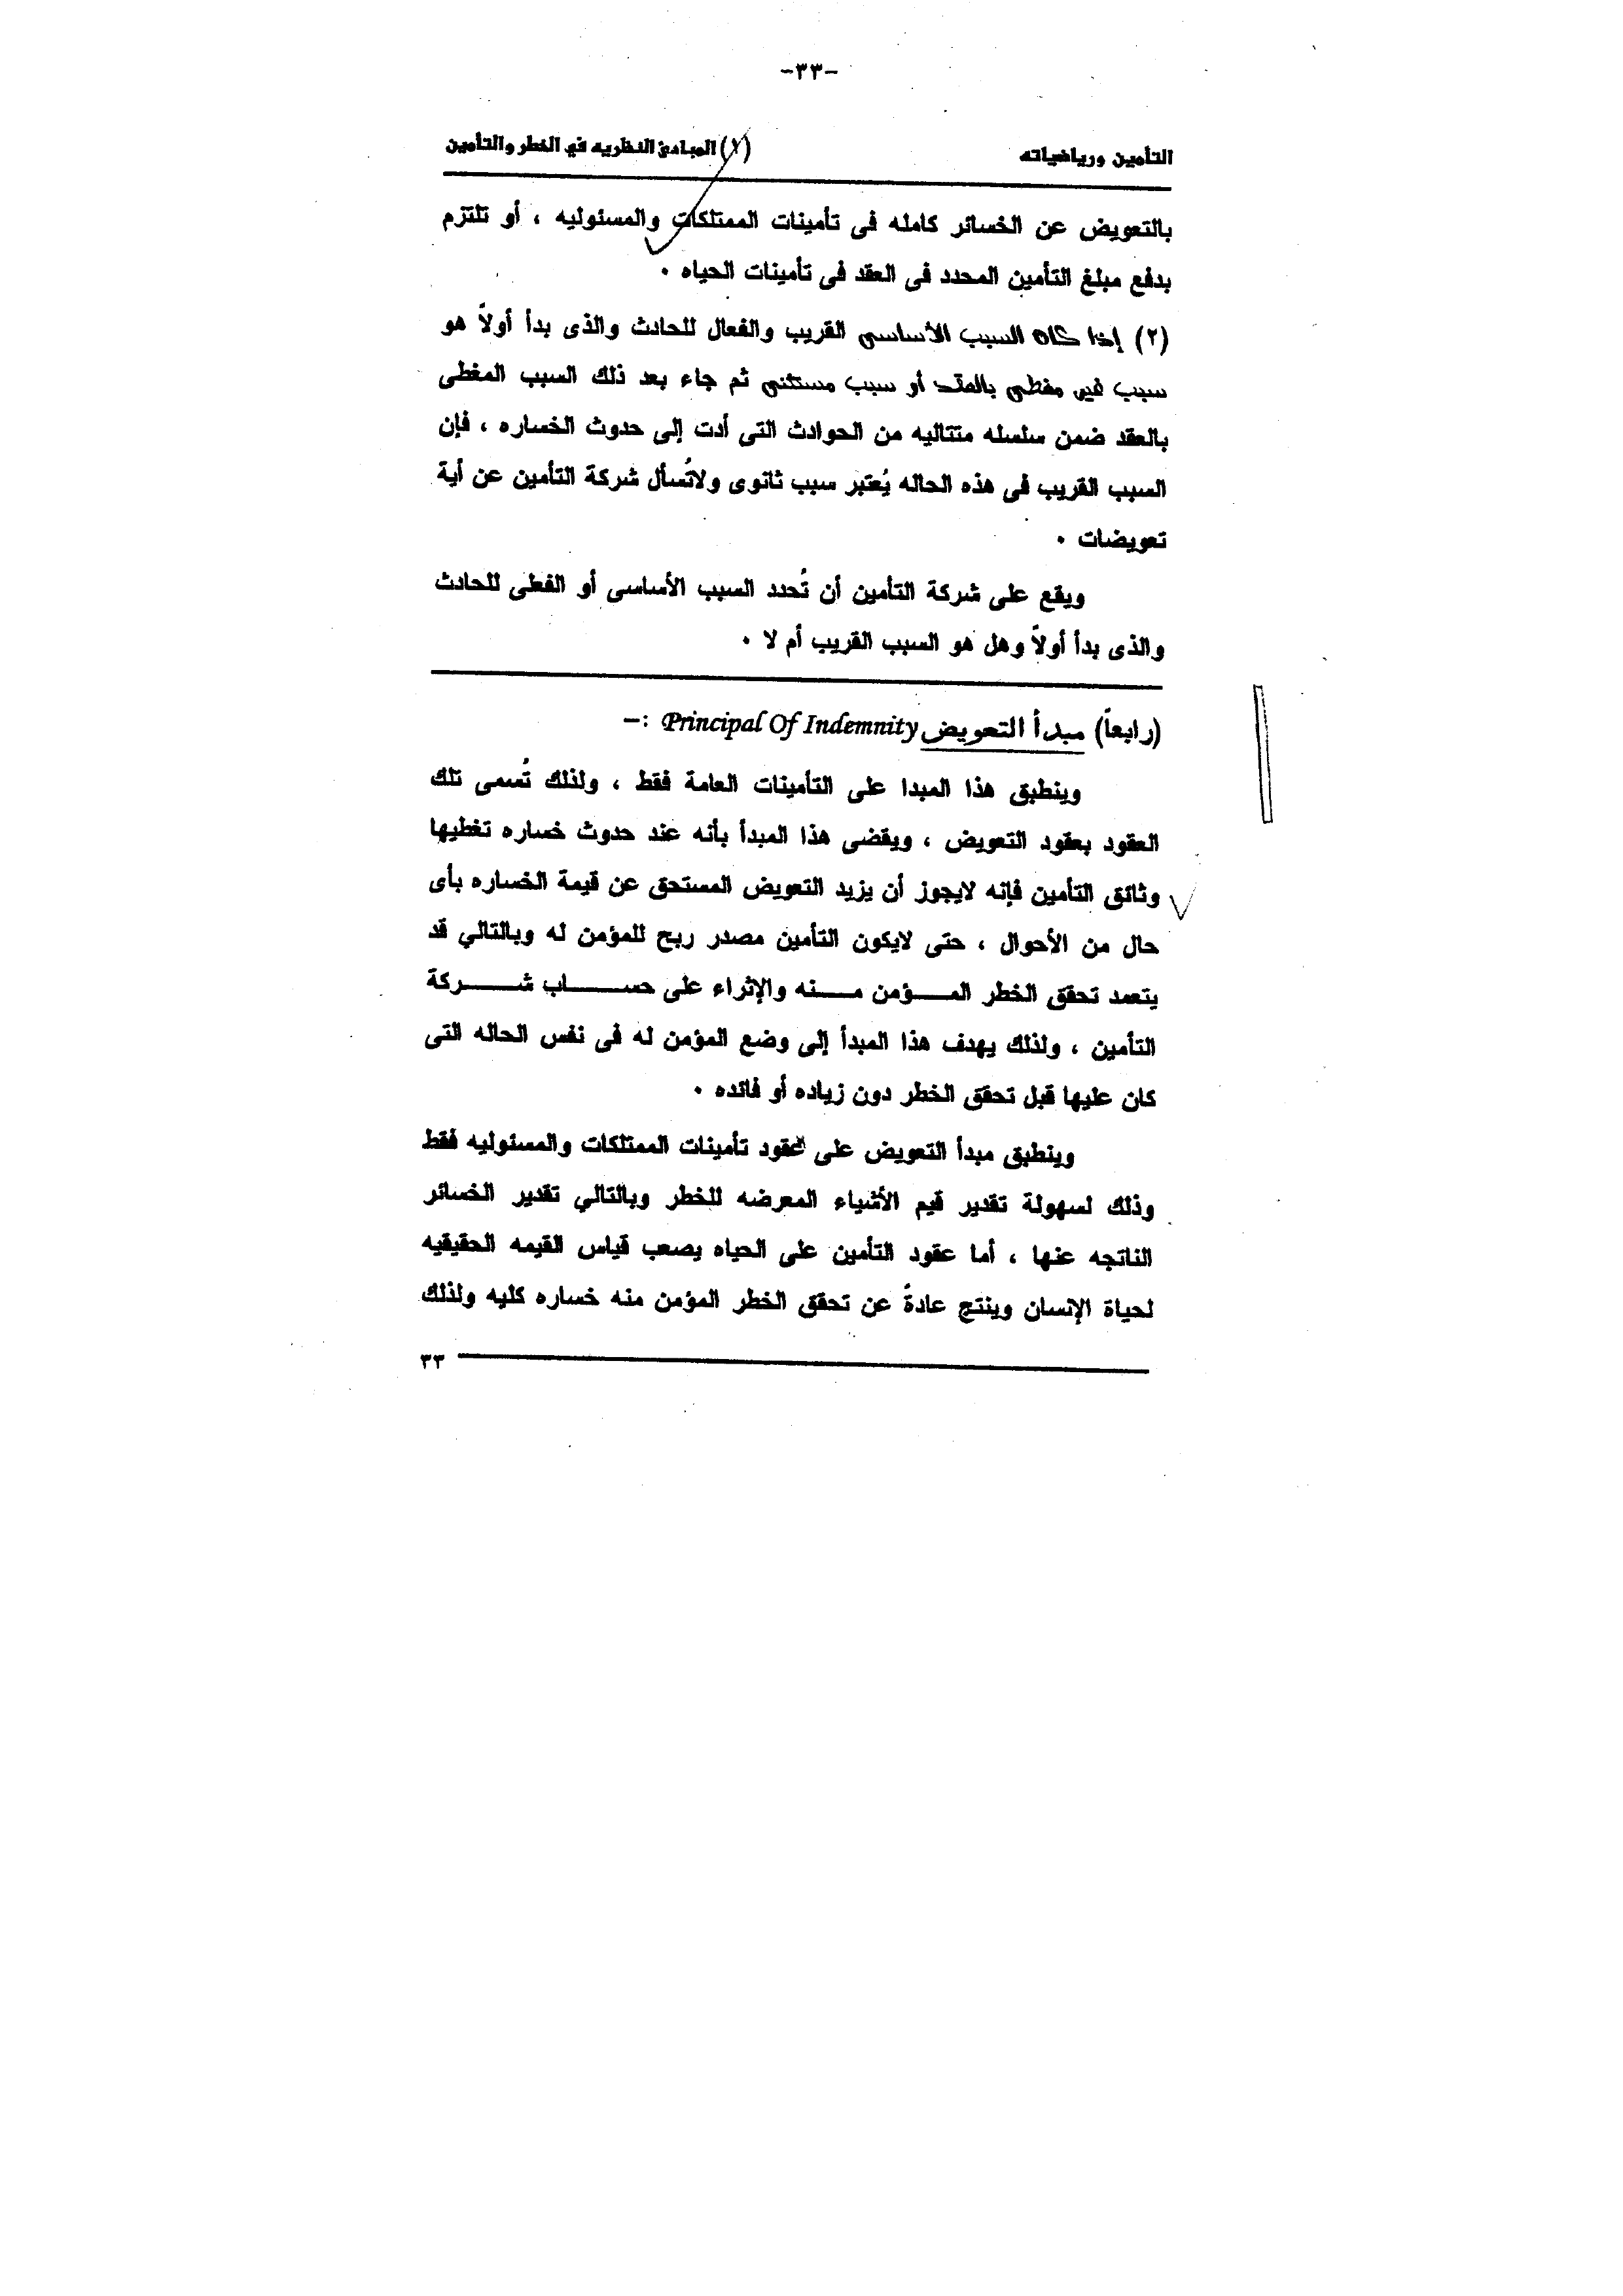 -٣٣-
التأمين ورياضياته (١) المبادئ النظريه في الخطر والتأمين
بالتعويض عن الخسائر كامله فى تأمينات الممتلكات والمسئوليه ، أو تلتزم
بدفع مبلغ التأمين المحدد فى العقد فى تأمينات الحياه .
(٢) إذا كان السبب الأساسى القريب والفعال للحادث والذى بدأ أولاً هو
سبب غير مغطى بالعقد أو سبب مستثنى ثم جاء بعد ذلك السبب المغطى
بالعقد ضمن سلسله متتاليه من الحوادث التى أدت إلى حدوث الخساره ، فإن
السبب القريب فى هذه الحاله يُعتبر سبب ثانوى ولاتُسأل شركة التأمين عن أية
تعويضات .
ويقع على شركة التأمين أن تُحدد السبب الأساسى أو الفعلى للحادث
والذى بدأ أولاً وهل هو السبب القريب أم لا .
(رابعاً) مبدأ التعويض Principal Of Indemnity :-
وينطبق هذا المبدا على التأمينات العامة فقط ، ولذلك تُسمى تلك
العقود بعقود التعويض ، ويقضى هذا المبدأ بأنه عند حدوث خساره تغطيها
وثائق التأمين فإنه لايجوز أن يزيد التعويض المستحق عن قيمة الخساره بأى
حال من الأحوال ، حتى لايكون التأمين مصدر ربح للمؤمن له وبالتالي قد
يتعمد تحقق الخطر المـــؤمن مـــنه والإثراء على حســـــاب شـــــركة
التأمين ، ولذلك يهدف هذا المبدأ إلى وضع المؤمن له فى نفس الحاله التى
كان عليها قبل تحقق الخطر دون زياده أو فائده .
وينطبق مبدأ التعويض على عقود تأمينات الممتلكات والمسئوليه فقط
وذلك لسهولة تقدير قيم الأشياء المعرضه للخطر وبالتالي تقدير الخسائر
الناتجه عنها ، أما عقود التأمين على الحياه يصعب قياس القيمه الحقيقيه
لحياة الإنسان وينتج عادةً عن تحقق الخطر المؤمن منه خساره كليه ولذلك
٣٣